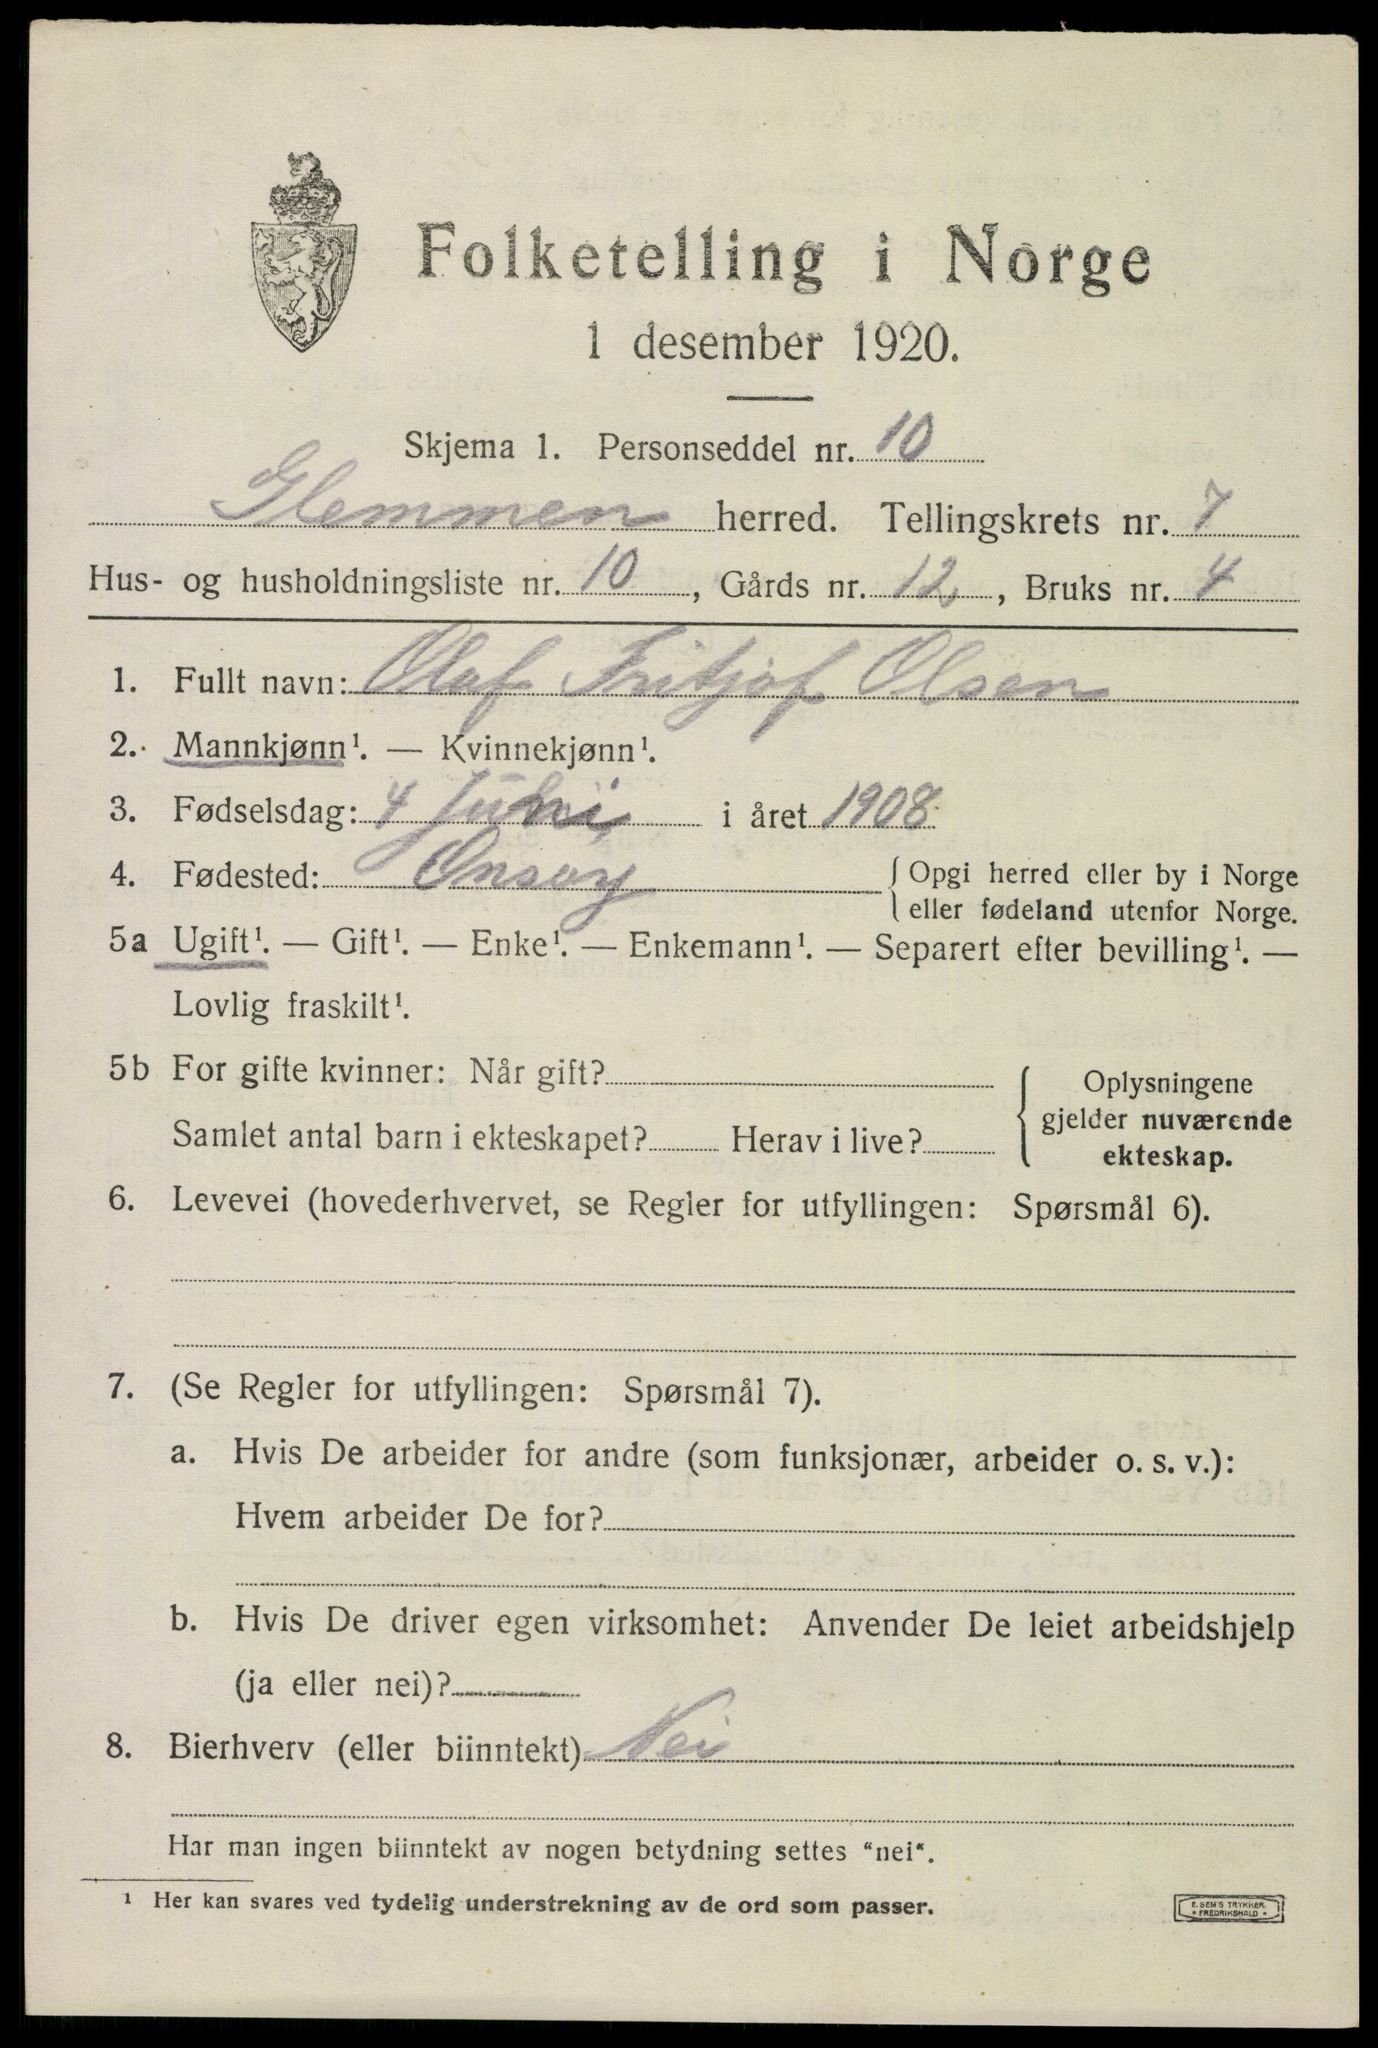 Folketelling i Norge
1 desember 1920.
Skjema 1. Personseddel nr. 10
Glemmen herred. Tellingskrets nr. 7
Hus- og husholdningsliste nr. 10, Gårds nr. 12, Bruks nr. 4
1. Fullt navn: Olaf Fritjof Olsen
2. Mannkjønn¹. — Kvinnekjønn¹.
3. Fødselsdag: 4 i året 1908
4. Fødested: Onsøy { Opgi herred eller by i Norge
eller fødeland utenfor Norge.
5a Ugift¹. — Gift¹. — Enke¹. — Enkemann¹. — Separert efter bevilling¹. —
Lovlig fraskilt¹.
5b For gifte kvinner: Når gift? { Oplysningene
gjelder nuværende
Samlet antal barn i ekteskapet? Herav i live?
ekteskap.
6. Levevei (hovederhvervet, se Regler for utfyllingen: Spørsmål 6).
7. (Se Regler for utfyllingen: Spørsmål 7).
a. Hvis De arbeider for andre (som funksjonær, arbeider o. s. v.):
Hvem arbeider De for?
b. Hvis De driver egen virksomhet: Anvender De leiet arbeidshjelp
(ja eller nei)?
8. Bierhverv (eller biinntekt) Nei
Har man ingen biinntekt av nogen betydning settes "nei".
¹ Her kan svares ved tydelig understrekning av de ord som passer.
E. SEM'S TRYKKERI.
* FREDRIKSHALD *